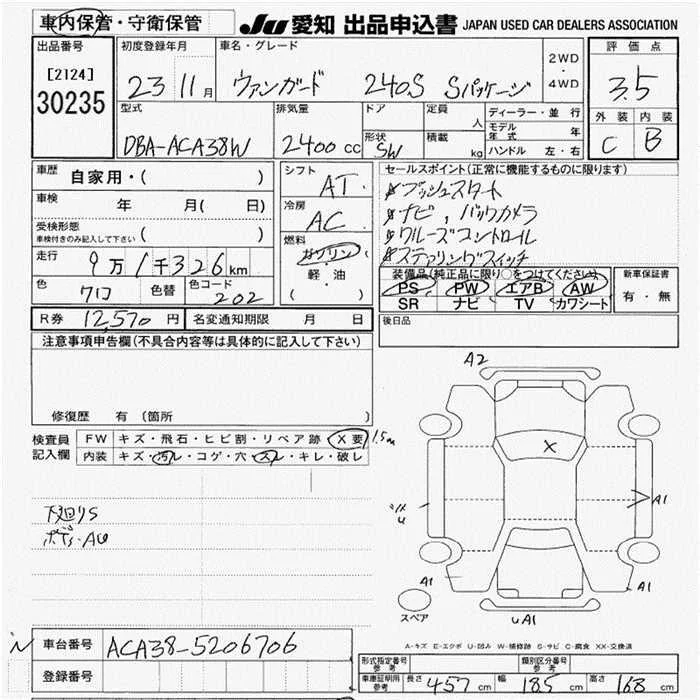 車内保管・守衛保管
JU 愛知 出品申込書 JAPAN USED CAR DEALERS ASSOCIATION
出品番号 初度登録年月 車名・グレード 2WD・4WD 評価点
[2124]
30235
23 11月 ヴァンガード 240S Sパッケージ 3.5
型式 排気量 ドア 定員 人 ディーラー・並行 外装 内装
モデル年式 年
DBA-ACA38W 2400cc 形状 SW 積載 kg ハンドル 左・右 C B
車歴 自家用・( ) シフト AT セールスポイント(正常に機能するものに限ります)
プッシュスタート
車検 年 月( 日) 冷房 AC ナビ, バックカメラ
受検形態 車検付きのみ記入して下さい ( ) クルーズコントロール
走行 9万1千326km 燃料 ガソリン ステアリングスイッチ
軽・油
( )
装備品(純正品に限り○をつけてください) 新車保証書
色 クロ 色替 色コード 202 PS PW エアB AW 有・無
SR ナビ TV カワシート
R券 12,570円 名変通知期限 月 日 後日品
注意事項申告欄(不具合内容等は具体的に記入して下さい)
修復歴 有 (箇所 )
A2
検査員記入欄 FW キズ・飛石・ヒビ割・リペア跡・X要
内装 キズ・汚レ・コゲ・穴・スレ・キレ・破レ
X
A1
U
下廻りS
A1
A1
スペア
UA1
A-キズ E-エクボ U-凹み W-補修跡 S-サビ C-腐食 XX-交換済
車台番号 ACA38-5206706
登録番号
型式指定番号 参考 類別区分番号 参考
車庫証明用 参考 長さ 457cm 幅 185cm 高さ 168cm